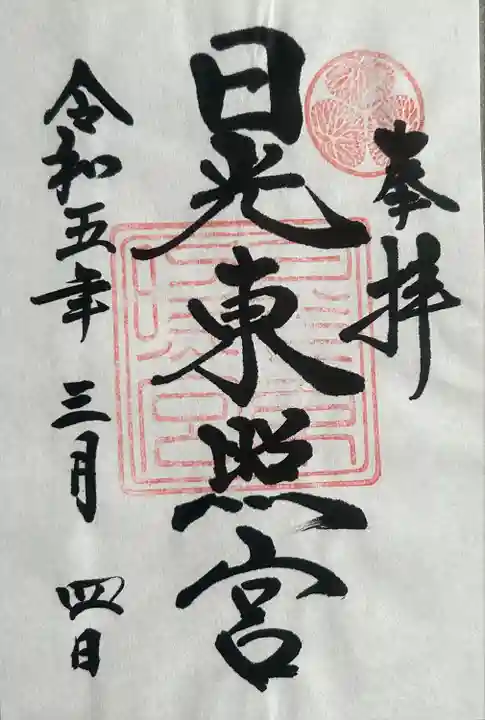 奉拝
日光東照宮
令和五年三月四日